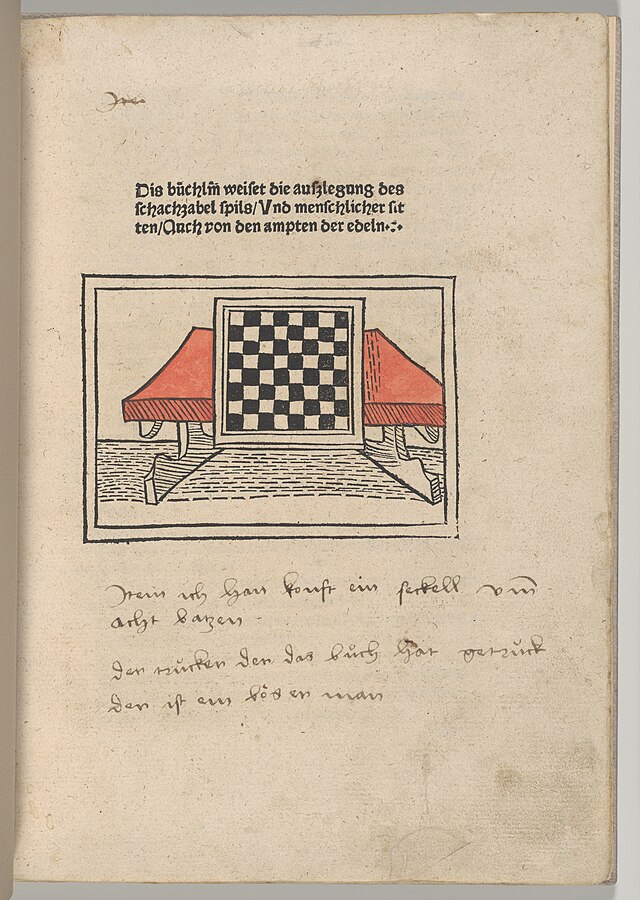 Jte
Dis bůchlin̄ weiset die auſzlegung des
ſchachzabel ſpils/Vnd menſchlicher ſit
ten/Auch von den ampten der edeln.:.
Jtem ich han kouft ein ſeckell vm̄
acht batzen
der trucker der das bůch hat getruck
der iſt ein bôſer man